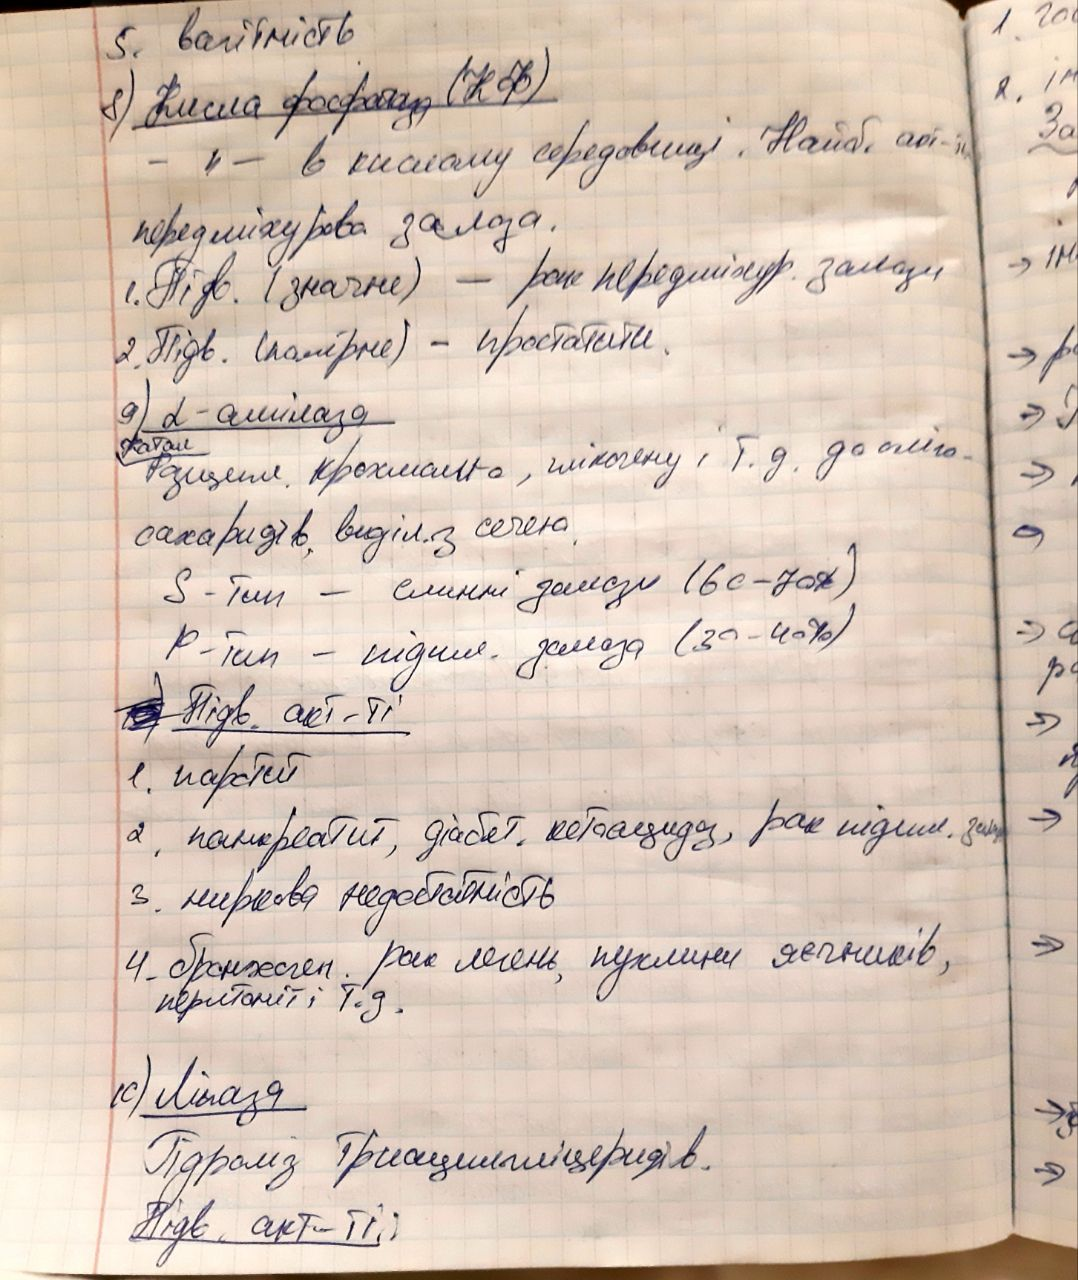 5. вагітність
8) Кисла фосфатаза (КФ)
– " – в кислому середовищі. Найб. акт-ть
передміхурова залоза.
1. Підв. (значне) – рак передміхур. залози
2. Підв. (помірне) – простатити.
9) α-амілаза
Катал
Розщепл. крохмалю, глікогену і т.д. до оліго-
сахаридів, виділ. з сечею.
S-тип – слинні залози (60-70%)
P-тип – підшл. залоза (30-40%)
Підв. акт-ті
1. паротит
2. панкреатит, діабет. кетоацидоз, рак підшл. залози
3. ниркова недостатність
4. бронхоген. рак легень, пухлини яєчників,
перитоніт і т.д.
10) Ліпаза
Гідроліз триацилгліцеридів.
Підв. акт-ті:
1.
2. ін
За
→ ін
→
→
→
→
→
→
→
→
→
→